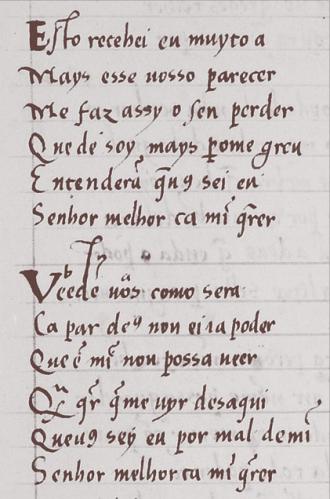 Esto recehei eu muyto a
Mays esse uosso parecer
Me faz assy o sen perder
Que de soy mays ꝑome greu
Entenderã q̃uꝯ sei eu
Senhor melhor ca mĩ q̃rer
Veede uos como sera
Ca par deꝯ non ei ia poder
Que ẽ mĩ non possa ueer
q̃r q̃me uyr desaqui
Queuꝯ sey eu por mal de mĩ
Senhor melhor ca mĩ q̃rer